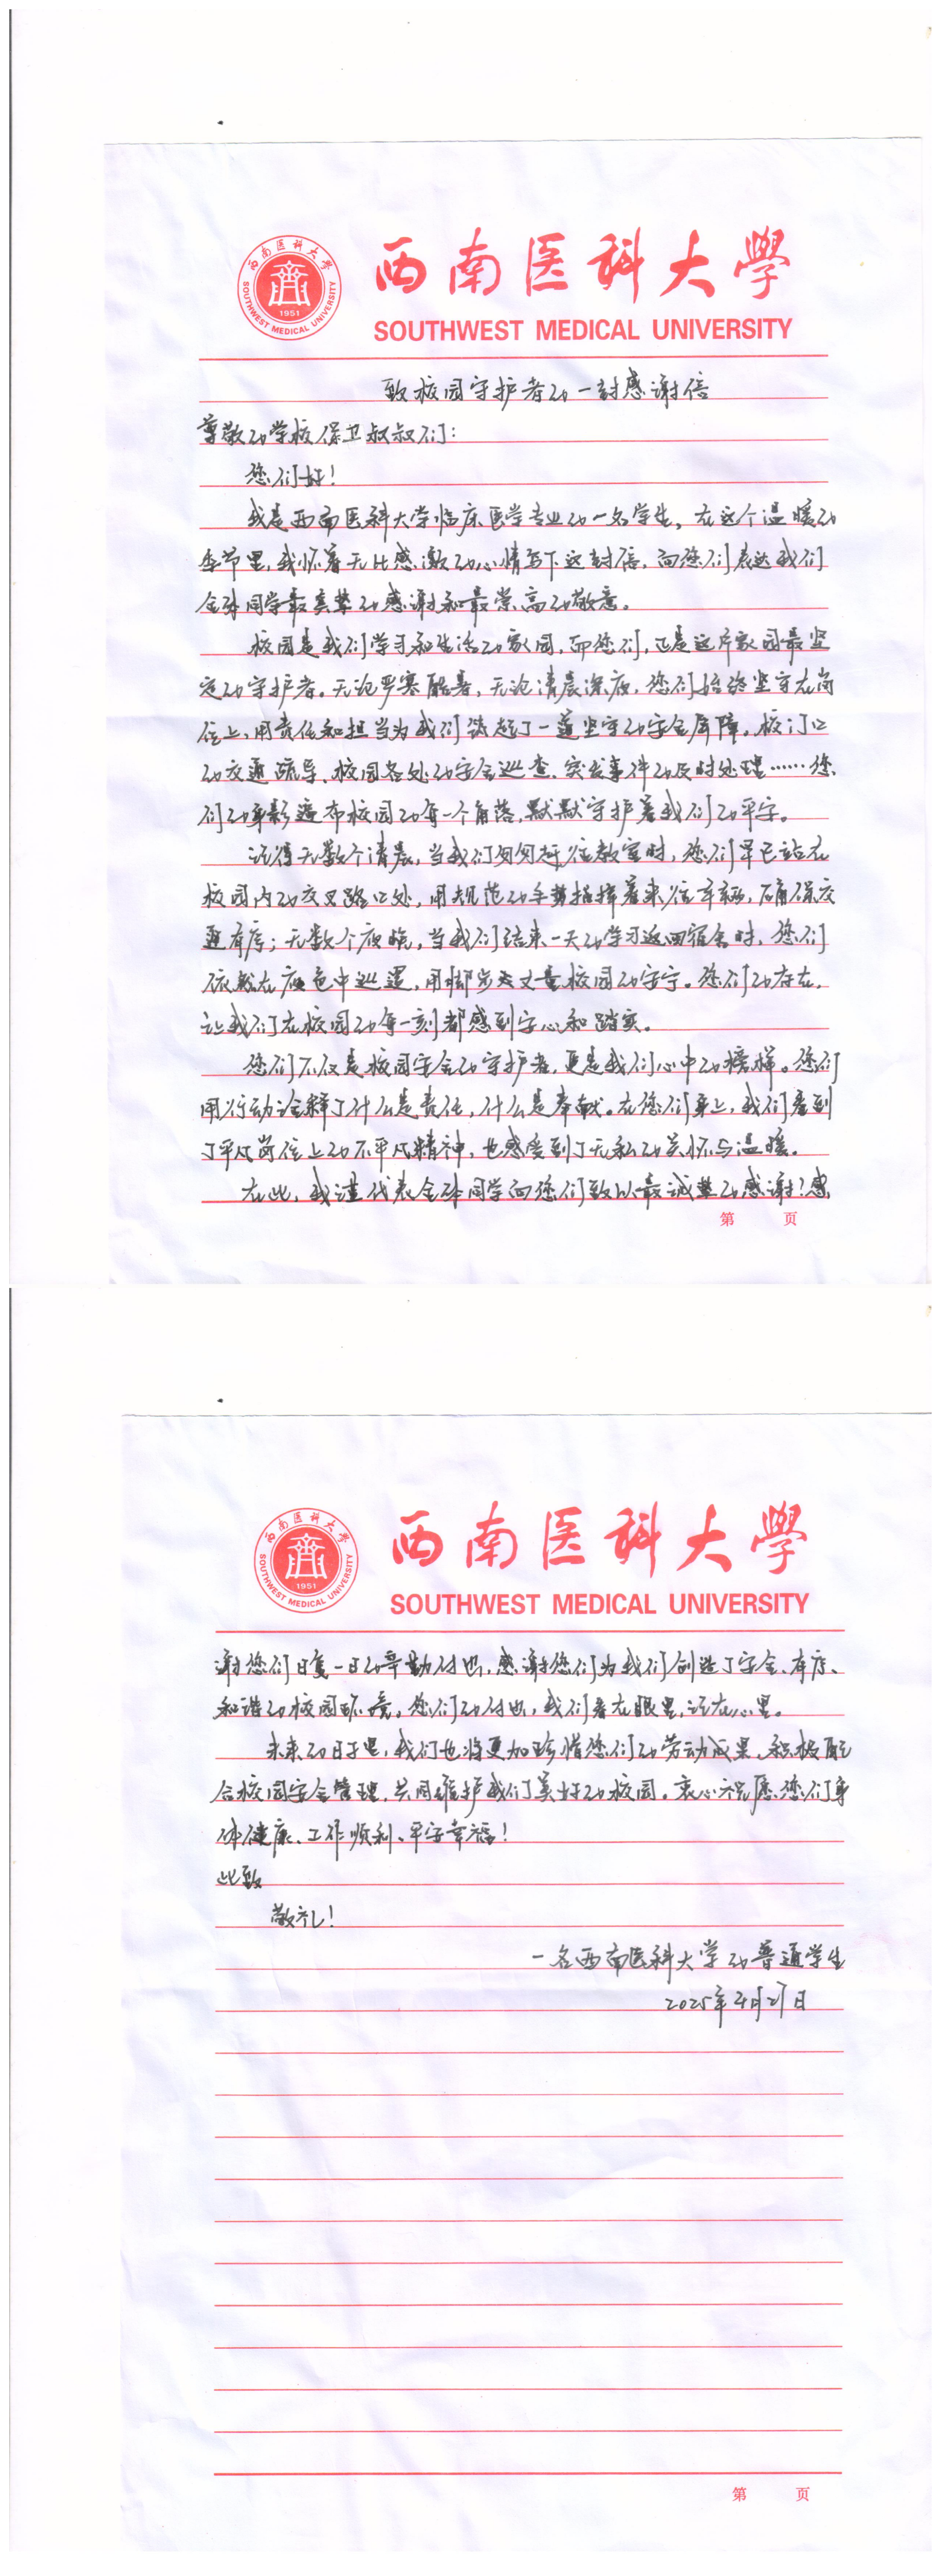 西南医科大学
SOUTHWEST MEDICAL UNIVERSITY
1951
西南医科大學
SOUTHWEST MEDICAL UNIVERSITY
致校园守护者的一封感谢信
尊敬的学校保卫叔叔们：
您们好！
我是西南医科大学临床医学专业的一名学生，在这个温暖的
季节里，我怀着无比感激的心情写下这封信，向您们表达我们
全体同学最真挚的感谢和最崇高的敬意。
校园是我们学习和生活的家园，而您们，正是这片家园最坚
定的守护者。无论严寒酷暑，无论清晨深夜，您们始终坚守在岗
位上，用责任和担当为我们筑起了一道坚实的安全屏障。校门口
的交通疏导、校园各处的安全巡查、突发事件的及时处理……您
们的身影遍布校园的每一个角落，默默守护着我们的平安。
记得无数个清晨，当我们匆匆赶往教室时，您们早已站在
校园内的交叉路口处，用规范的手势指挥着来往车辆，确保交
通有序；无数个夜晚，当我们结束一天的学习返回宿舍时，您们
依然在夜色中巡逻，用脚步丈量校园的安宁。您们的存在，
让我们在校园的每一刻都感到安心和踏实。
您们不仅是校园安全的守护者，更是我们心中的榜样。您们
用行动诠释了什么是责任，什么是奉献。在您们身上，我们看到
了平凡岗位上的不平凡精神，也感受到了无私的关怀与温暖。
在此，我谨代表全体同学向您们致以最诚挚的感谢！感
第 页
西南医科大学
SOUTHWEST MEDICAL UNIVERSITY
1951
西南医科大學
SOUTHWEST MEDICAL UNIVERSITY
谢您们日复一日的辛勤付出，感谢您们为我们创造了安全、有序、
和谐的校园环境。您们的付出，我们看在眼里，记在心里。
未来的日子里，我们也将更加珍惜您们的劳动成果，积极配
合校园安全管理，共同维护我们美好的校园。衷心祝愿您们身
体健康、工作顺利、平安幸福！
此致
敬礼！
一名西南医科大学的普通学生
2025年4月27日
第 页